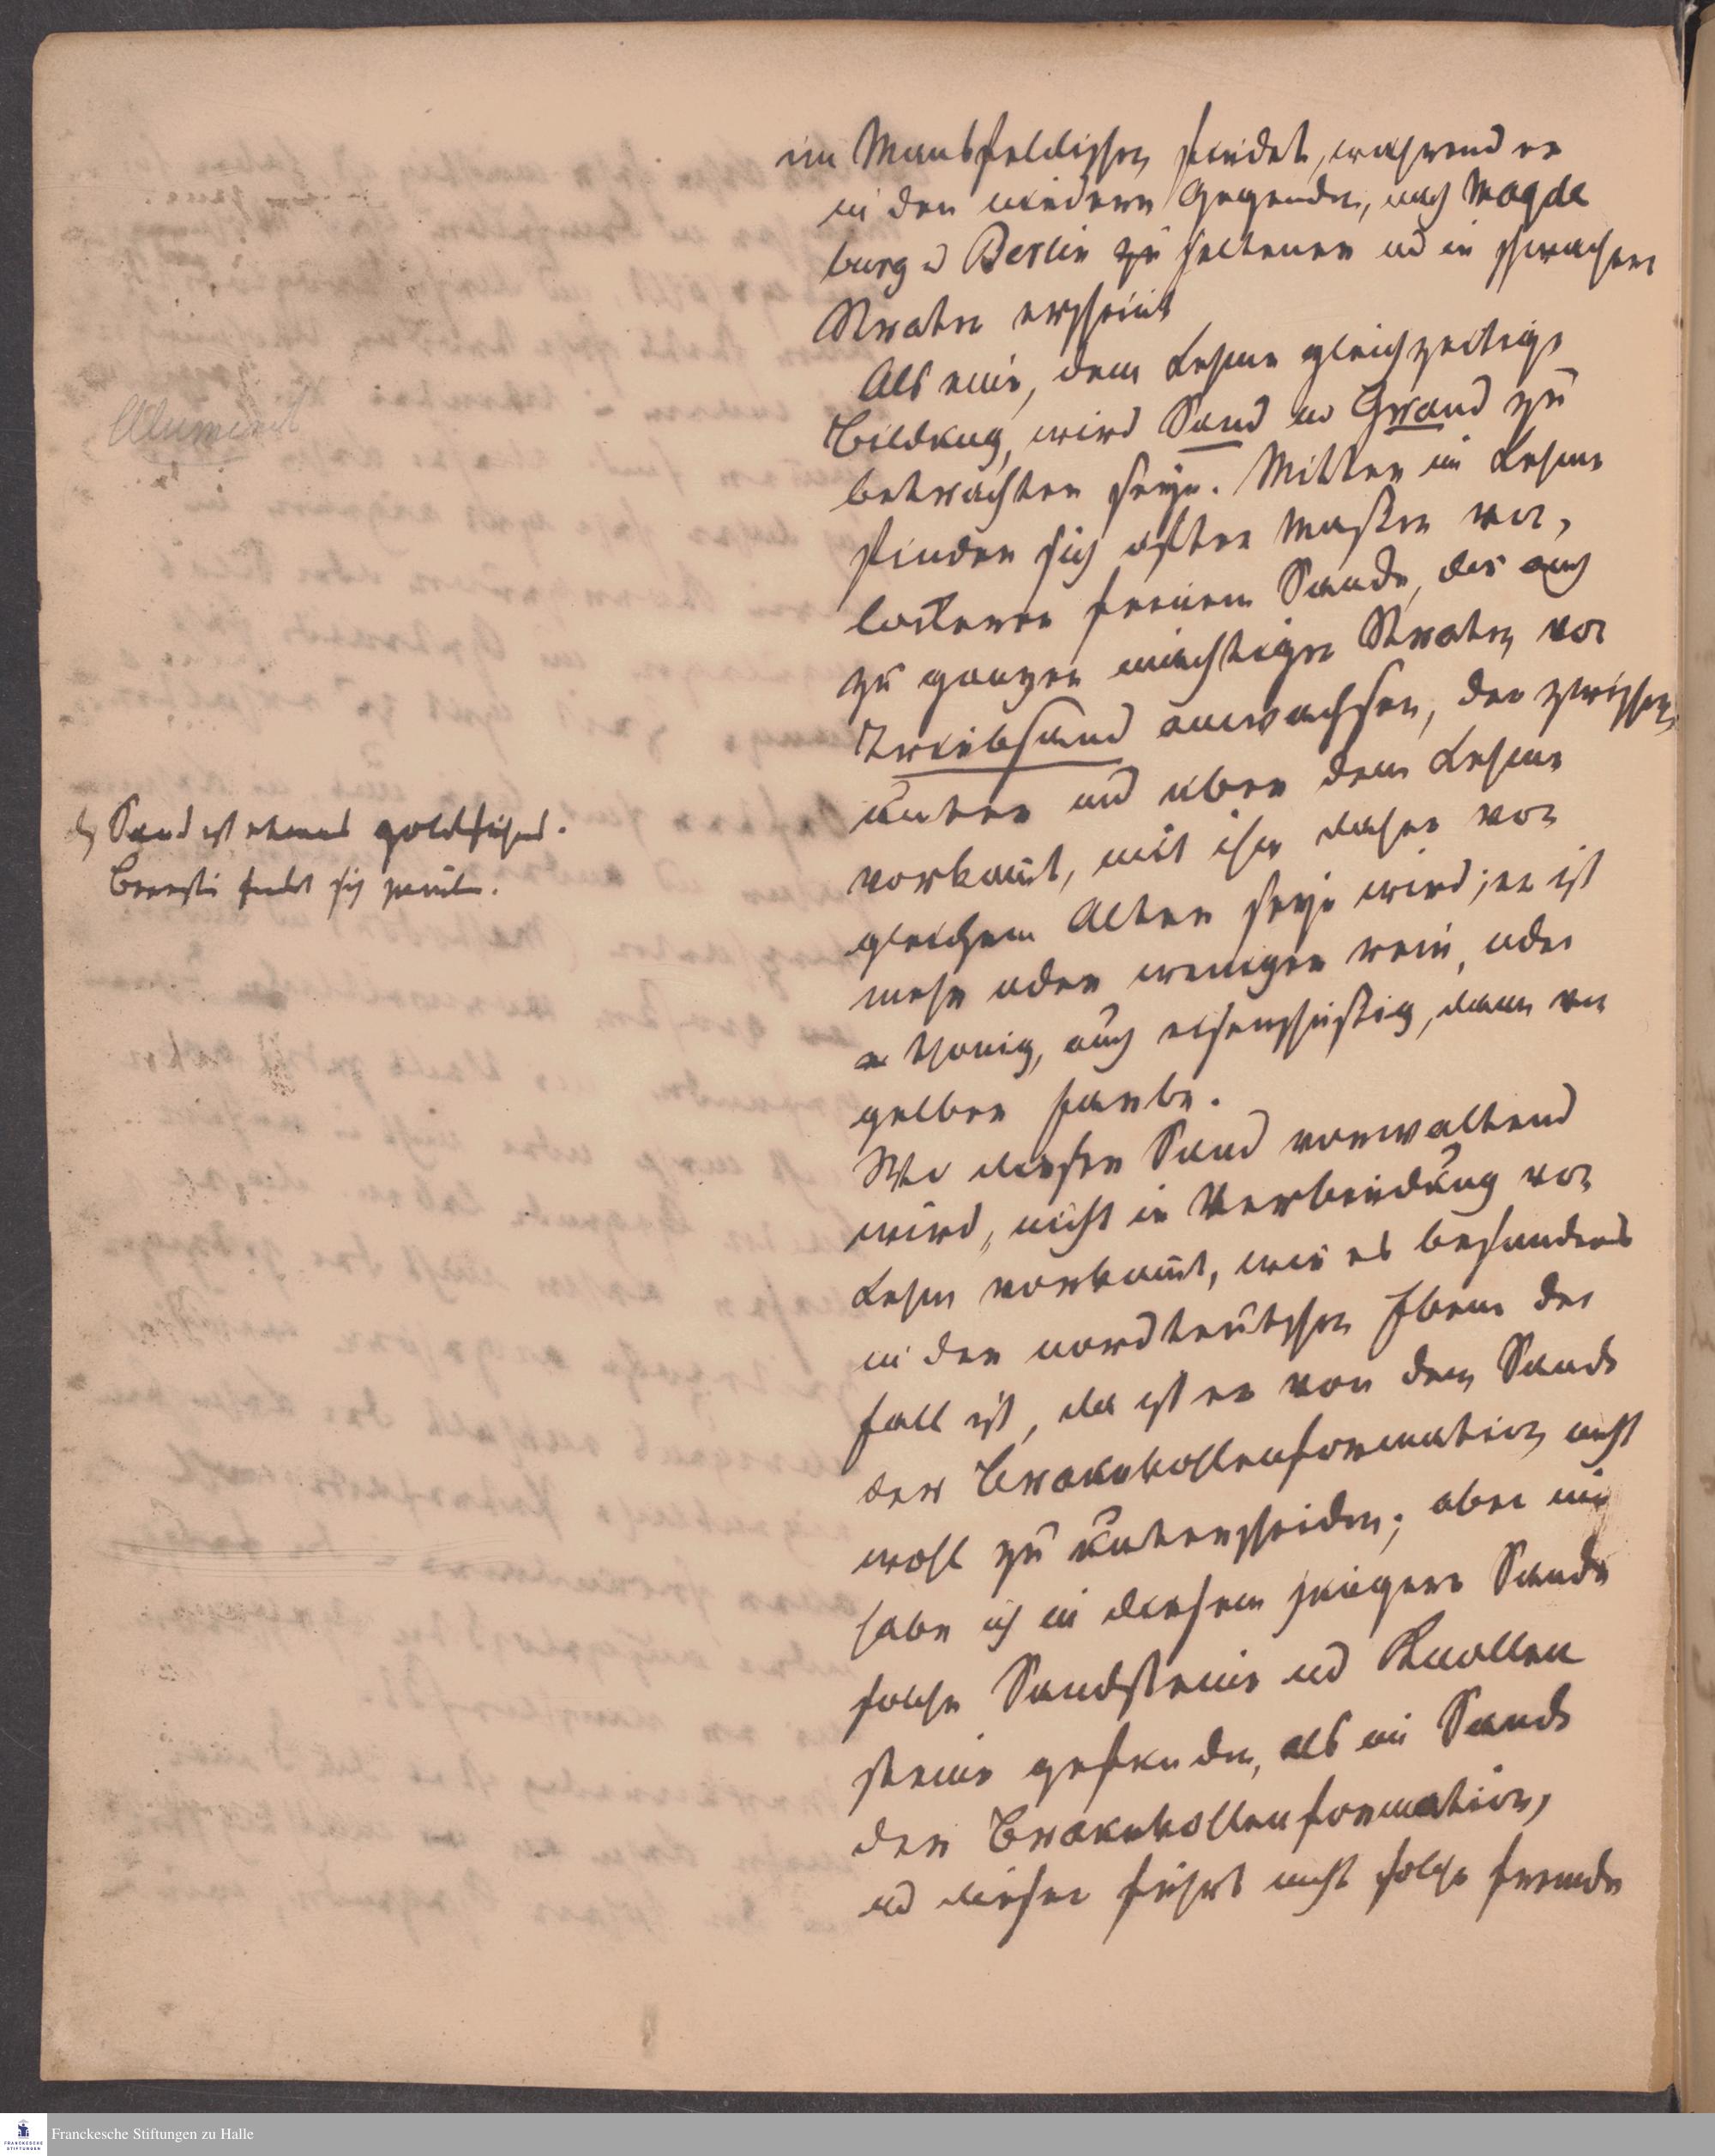 im Mansfeldischen findet, während er
in den niedern Gegenden, nach Magde
burg u Berlin zu seltener und in schwachen
Straten erscheint
Als eine, dem Lehme gleichzeitige
Bildung, wird Sand und Grand zu
betrachten seyn. Mitten im Lehme
finden sich ofter Massen von,
lockeren feinem Sande, der auch
zu ganzen mächtigen Straten von
Triebsand anwachsen, der zwischen,
unter und über dem Lehme
vorkomt, mit ihm daher von
gleichem Alter seyn wird; er ist
mehr oder weniger rein, oder
thonig, auch eisenschüssig, dann von
gelber Farbe.
Wo dieser Sand vorwaltend
wird, nicht in Verbindung von
Lehm vorkomt, wie es besonders
in der nordteutschen Ebene der
Fall ist, da ist er von dem Sande
der Braunkohlenformation nicht
wohl zu unterscheiden; aber nie
habe ich in diesem jüngern Sande
solche Sandsteine und Knollen
steine gefunden, als im Sande
der Braunkohlenformation,
und dieser führt nicht solche fremde
Alumint
Sand ist etwas goldhaltend.
Bernstein findet sich zuweilen.
Franckesche Stiftungen zu Halle